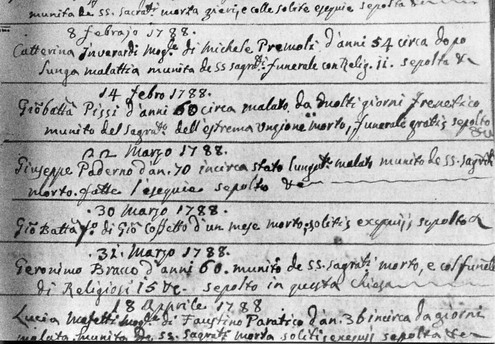 munita de SS. sacrati morta ieri, e colle solite esequie sepolta &c
8 febrajo 1788.
Catterina Inverardi mogl.e di Michele Premoli d'anni 54 circa dopo
lunga malattia munita de SS sagrati. funerale con Relig. 11. sepolta &c
14 febro 1788.
Gio: batta Pissi d'anni 60 circa malato da molti giorni frenetico,
munito del sagrato dell'estrema unzione morto, funerale gratis sepolto &c
22 Marzo 1788.
Giuseppe Paderno d'an. 70 incirca stato lungate malato munito de SS. sagrati
morto. fatte l'esequie sepolto &c
30 Marzo 1788.
Gio: Batta fo. di Gio Coffetto d'un mese morto, solitis exequijs sepolto &
31. Marzo 1788.
Geronimo Brasco d'anni 60. munito de SS. sagrati morto, e col funle
di Religiosi 15 &c. sepolto in questa chiesa
18 Aprile 1788
Lucia Mafetti mogle di Faustino Paratico d'an. 36 incirca da giorni
malata munita de SS. sagrati morta solitis exequijs sepolta &c